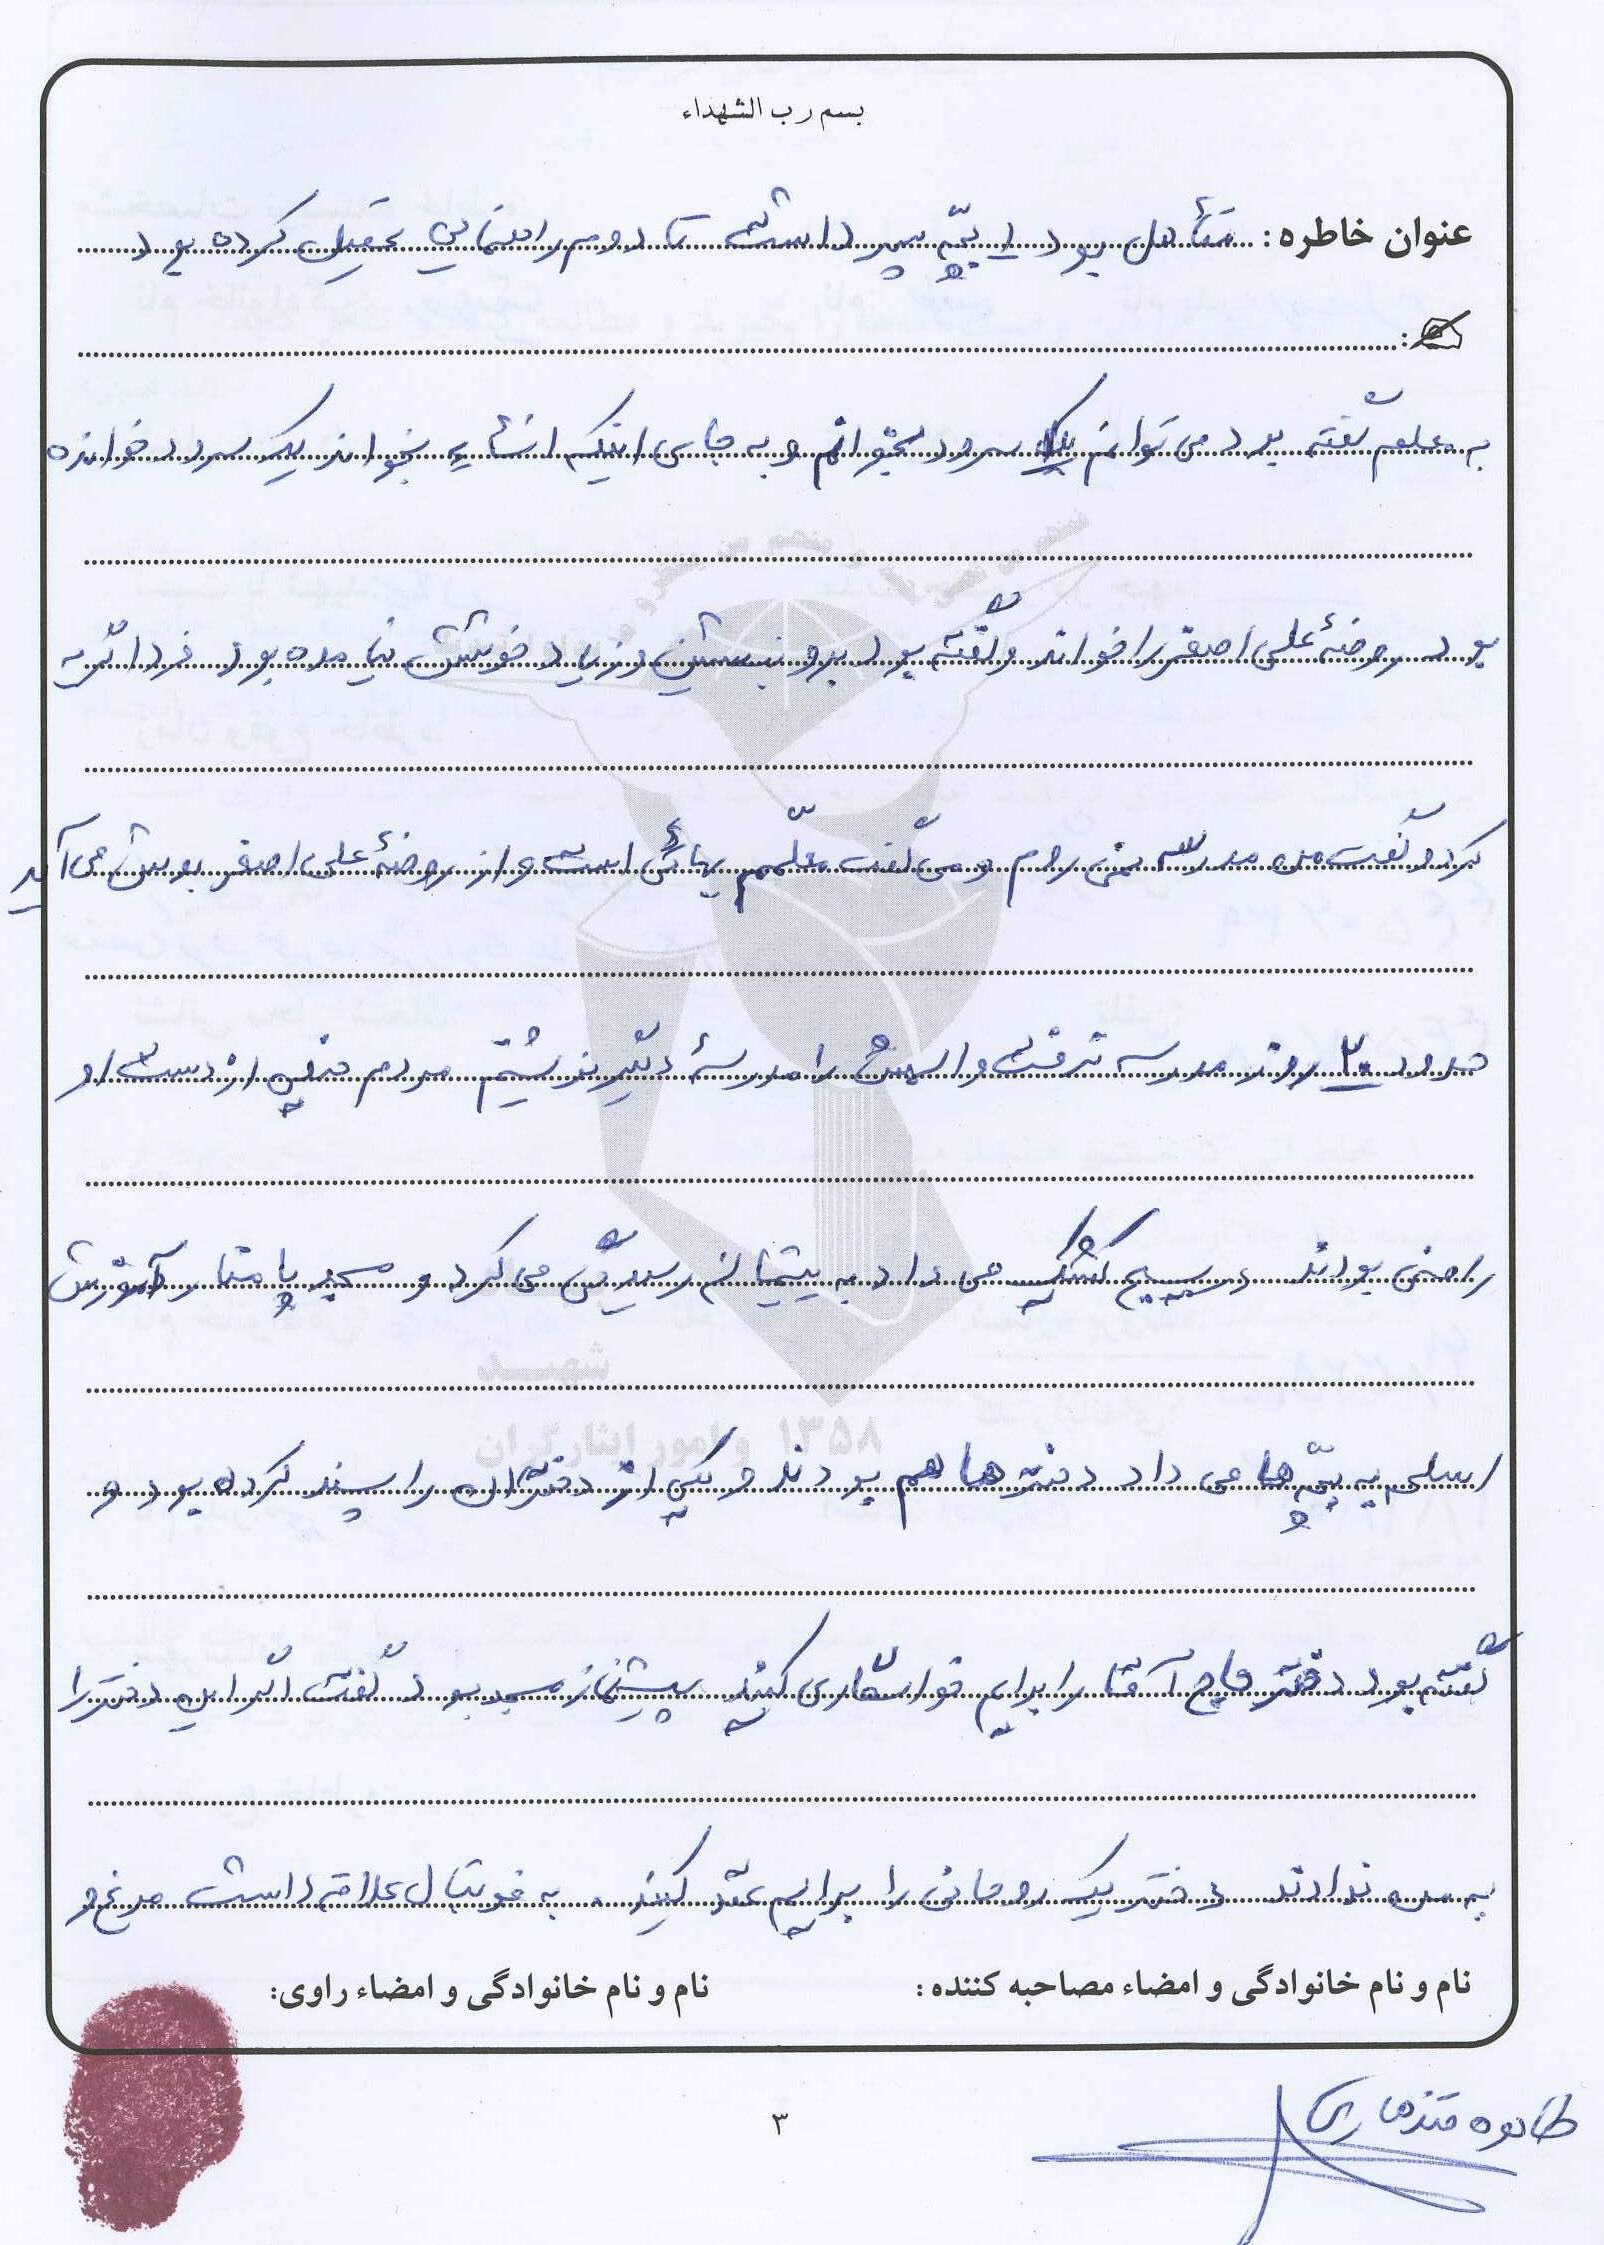 بسم رب الشهداء
عنوان خاطره: متأهل بود ۱ بچّه پسر داشت تا دوم راهنمایی تحصیل کرده بود
به معلم گفته بود می توانم یک سرود بخوانم و به جای اینکه انشاء بخواند یک سرود خوانده
بود روضهٔ علی اصغر را خواند و گفته بود برو بنشین و زیاد خوشش نیامده بود فردا گریه
کرد و گفت من مدرسه نمی روم و می گفت معلّمم بهائی است و از روضهٔ علی اصغر بدش می آید
حدود ۲۰ روز مدرسه نرفت و اسمش را مدرسهٔ دیگر نوشتیم مردم خیلی از دست او
راضی بودند در بسیج کشیک می داد به یتیمان رسیدگی می کرد و مسجد پامنار آموزش
اسلحه به بچّه ها می داد دخترها هم بودند و یکی از دختران را پسند کرده بود و
گفته بود دختر حاج آقا را برایم خواستگاری کنید پیشنماز مسجد بود گفت اگر این دختر را
به من ندادند دختر یک روحانی را برایم عقد کنید . به فوتبال علاقه داشت مرغ و
نام و نام خانوادگی و امضاء مصاحبه کننده: نام و نام خانوادگی و امضاء راوی:
۳
طاهره قندهاری
شهید
۱۳۵۸ و امور ایثارگران